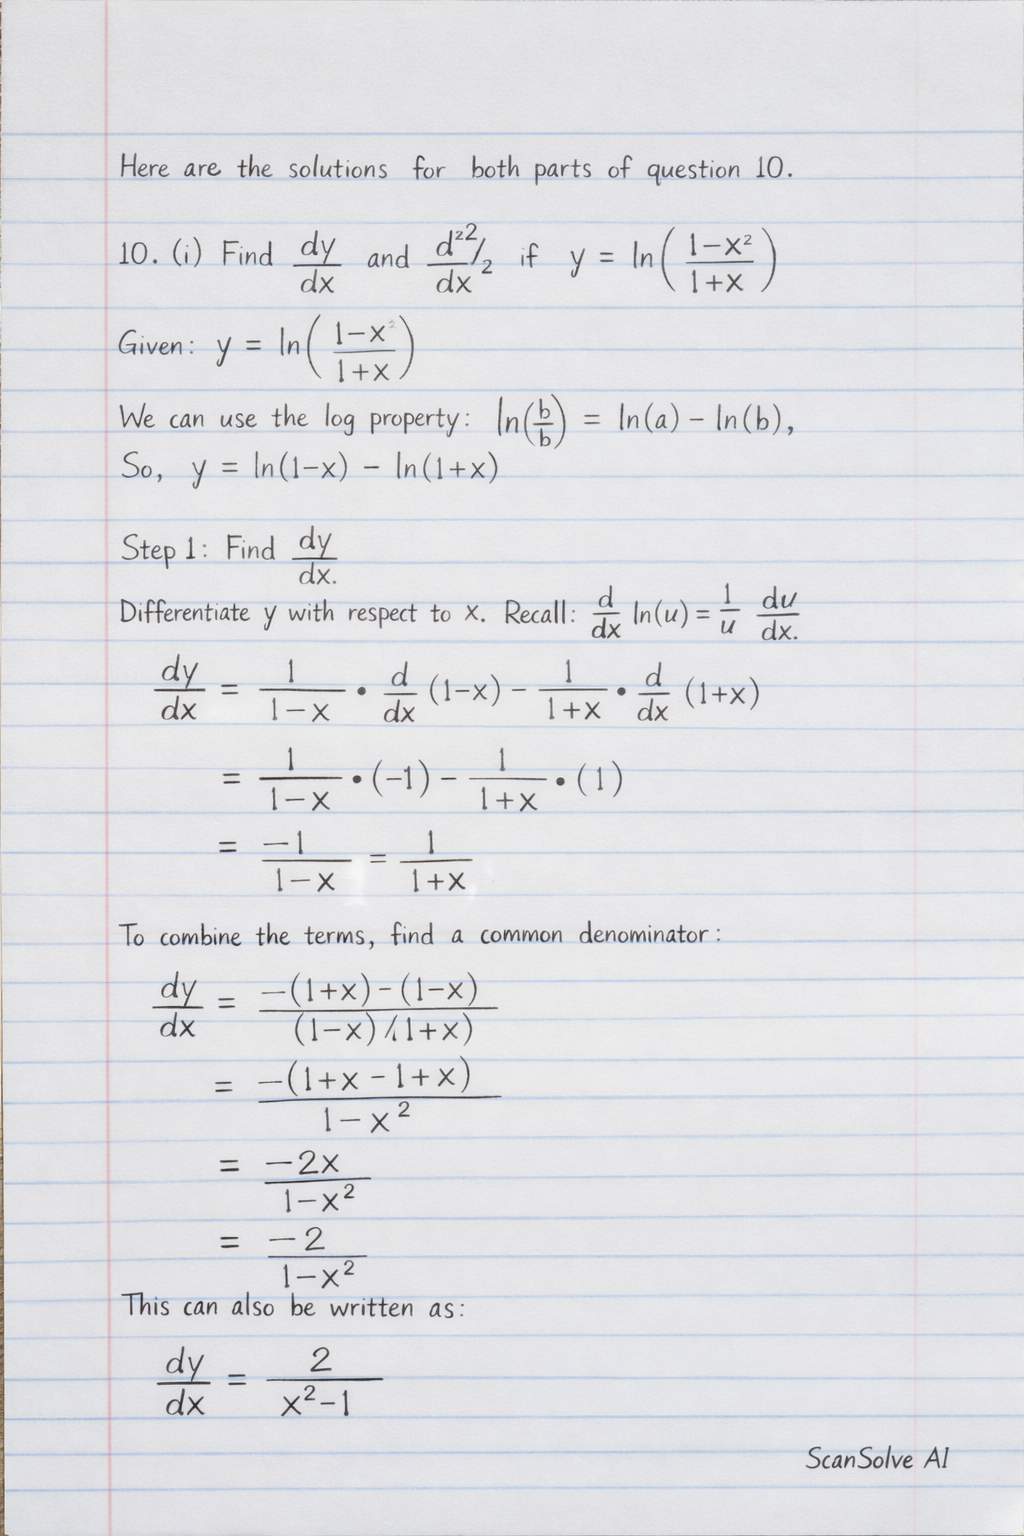 Here are the solutions for both parts of question 10.
10. (i) Find dy/dx and d²2/2/dx if y = ln((1-x²)/(1+x))
Given: y = ln((1-x²)/(1+x))
We can use the log property: ln(b/b) = ln(a) - ln(b),
So, y = ln(1-x) - ln(1+x)
Step 1: Find dy/dx.
Differentiate y with respect to x. Recall: d/dx ln(u) = 1/u du/dx.
dy/dx = 1/(1-x) • d/dx (1-x) - 1/(1+x) • d/dx (1+x)
= 1/(1-x) • (-1) - 1/(1+x) • (1)
= -1/(1-x) = 1/(1+x)
To combine the terms, find a common denominator:
dy/dx = (-(1+x)-(1-x))/((1-x)/(1+x))
= (-(1+x-1+x))/(1-x²)
= -2x/(1-x²)
= -2/(1-x²)
This can also be written as:
dy/dx = 2/(x²-1)
ScanSolve AI